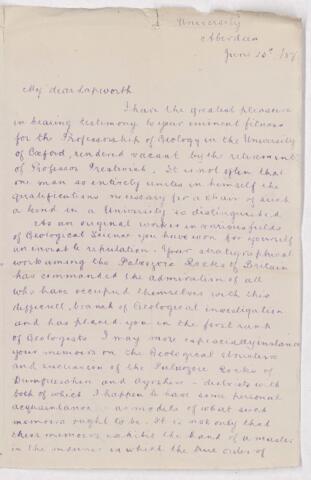 University
Aberdeen
June 20th /87
My dear Lapworth
I have the greatest pleasure
in bearing testimony to your eminent fitness
for the Professorship of Geology in the University
of Oxford, rendered vacant by the retirement
of Professor Prestwich. It is not often that
one man so entirely unites in himself the
qualifications necessary for a chair of such
a kind in a University so distinguished.
As an original worker in various fields
of Geological Science you have won for yourself
an enviable reputation. Your stratigraphical
work among the Palaeozoic Rocks of Britain
has commanded the admiration of all
who have occupied themselves with this
difficult branch of Geological investigation
and has placed you in the first rank
of Geologists. I may more especially instance
your memoirs on the Geological structure
and succession of the Palaeozoic Rocks of
Dumfriesshire and Ayrshire - districts with
both of which I happen to have some personal
acquaintance - as models of what such
memoirs ought to be. It is not only that
these memoirs exhibit the hand of a master
in the manner in which the true order of